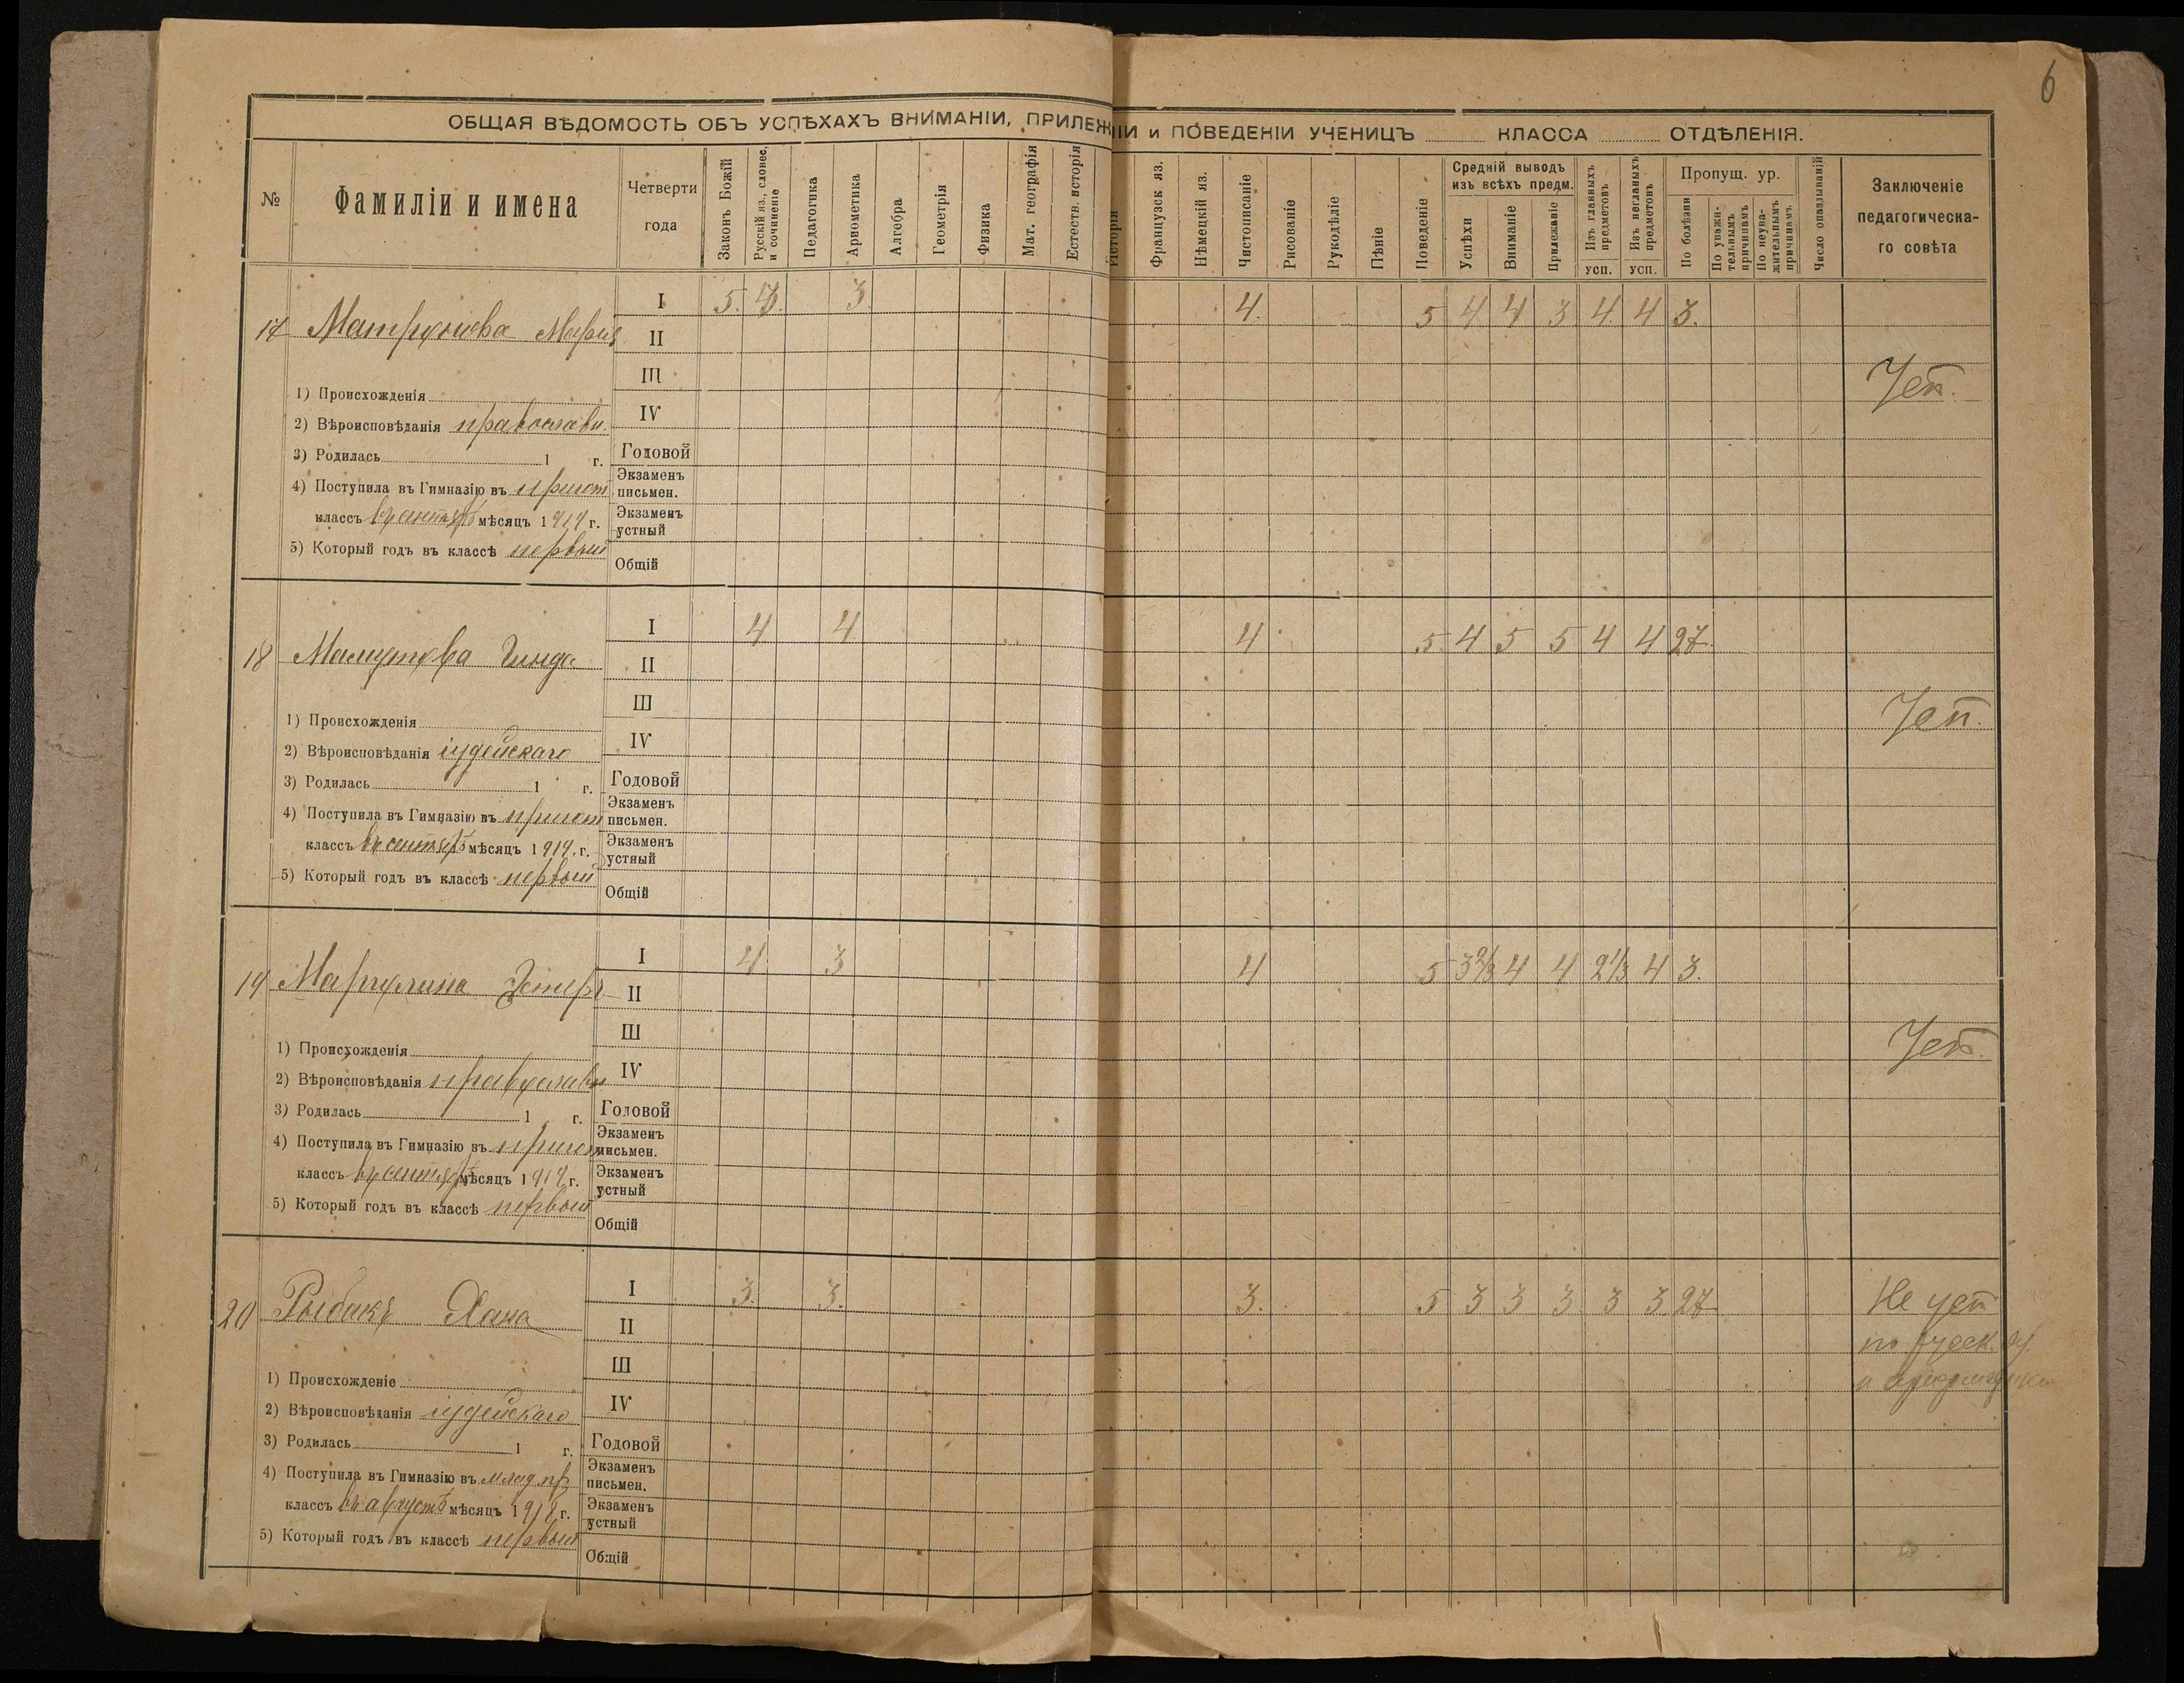 6
ОБЩАЯ ВѢДОМОСТЬ ОБЪ УСПѢХАХЪ ВНИМАНІИ, ПРИЛЕЖНІИ и ПОВЕДЕНІИ УЧЕНИЦЪ КЛАССА ОТДѢЛЕНІЯ.
№
Фамиліи и имена
Четверти
года
Законъ Божій
Русскій яз., словес.
и сочиненіе
Педагогика
Ариѳметика
Алгебра
Геометрія
Физика
Мат. географія
Естеств. исторія
Исторія
Французск яз.
Нѣмецкій яз.
Чистописаніе
Рисованіе
Рукодѣліе
Пѣніе
Поведеніе
Средній выводъ
изъ всѣхъ предм.
Успѣхи
Вниманіе
Прилежаніе
Изъ главныхъ
предметовъ
усп.
Изъ неглавныхъ
предметовъ
усп.
Пропущ. ур.
По болѣзни
По уважи-
тельнымъ
причинамъ
По неува-
жительнымъ
причинамъ
Число опаздываній
Заключеніе
педагогическа-
го совѣта
17 Марія
I 5. 3. 3. 4. 5 4 4 3 4. 4 3.
II
III
IV
Годовой
Экзаменъ
письмен.
Экзаменъ
устный
Общій
Усп.
1) Происхожденія
2) Вѣроисповѣданія православн.
3) Родилась 1 г.
4) Поступила въ Гимназію въ пригот
классъ въ сентябрѣ мѣсяцъ 1919 г.
5) Который годъ въ классѣ первый
18
I 4 4 4 5. 4 5 5 4 4 27.
II
III
IV
Годовой
Экзаменъ
письмен.
Экзаменъ
устный
Общій
Усп.
1) Происхожденія
2) Вѣроисповѣданія іудейскаго
3) Родилась 1 г.
4) Поступила въ Гимназію въ пригот
классъ въ сентябрѣ мѣсяцъ 1919. г.
5) Который годъ въ классѣ первый
19 Маргулина Эстеръ
I 4 3 4 5 3 2/3 4 4 2 1/3 4 3.
II
III
IV
Головой
Экзаменъ
письмен.
Экзаменъ
устный
Общій
Усп.
1) Происхожденія
2) Вѣроисповѣданія православн
3) Родилась 1 г.
4) Поступила въ Гимназію въ пригот
классъ въ сентябрѣ мѣсяцъ 1919 г.
5) Который годъ въ классѣ первый
20 Рыбакъ Хана
I 3. 3. 3. 5 3 3 3 3 3 27
II
III
IV
Годовой
Экзаменъ
письмен.
Экзаменъ
устный
Общій
Не усп
по русск. яз.
и ариѳметикѣ
1) Происхожденіе
2) Вѣроисповѣданія іудейскаго
3) Родилась 1 г.
4) Поступила въ Гимназію въ млад. пр.
классъ въ августѣ мѣсяцъ 1918 г.
5) Который годъ въ классѣ первый